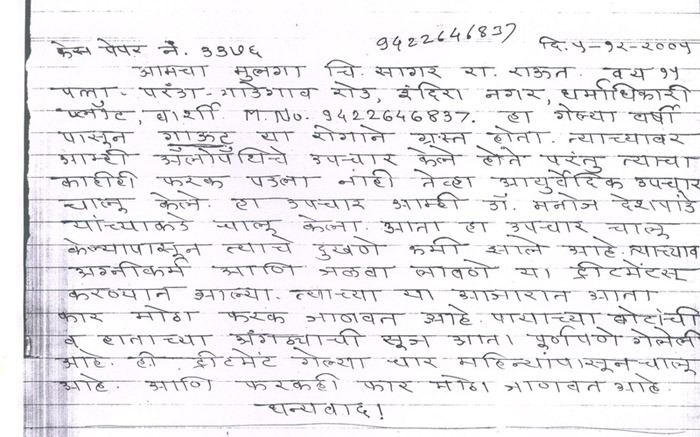 केस पेपर नं. ३३७६ 9422646837 दि. ५-१२-२००५
आमचा मुलगा चि. सागर रा. राऊत. वय १५
पत्ता - परंडा - गाडेगाव रोड, इंदिरा नगर, धर्माधिकारी
प्लॉट, बार्शी. M.No. 9422646837. हा गेल्या वर्षी
पासून गाऊट या रोगाने ग्रस्त होता. त्याच्यावर
आम्ही अ‍ॅलोपॅथिचे उपचार केले होते परंतु त्याचा
काहीही फरक पडला नाही तेव्हा आयुर्वेदिक उपचार
चालू केले. हा उपचार आम्ही डॉ. मनोज देशपांडे
यांच्याकडे चालू केला. आता हा उपचार चालू
केल्यापासून त्याचे दुखणे कमी झाले आहे. त्याच्याव
अग्नीकर्म आणि जळवा लावणे या ट्रीटमेंटस्
करण्यात आल्या. त्याच्या या आजारात आता
फार मोठा फरक जाणवत आहे. पायाच्या बोटांची
व हाताच्या अंगठ्याची सूज आता पूर्णपणे गेलेली
आहे. ही ट्रीटमेंट गेल्या चार महिन्यांपासून चालू
आहे. आणि फरकही फार मोठा जाणवत आहे.
धन्यवाद!